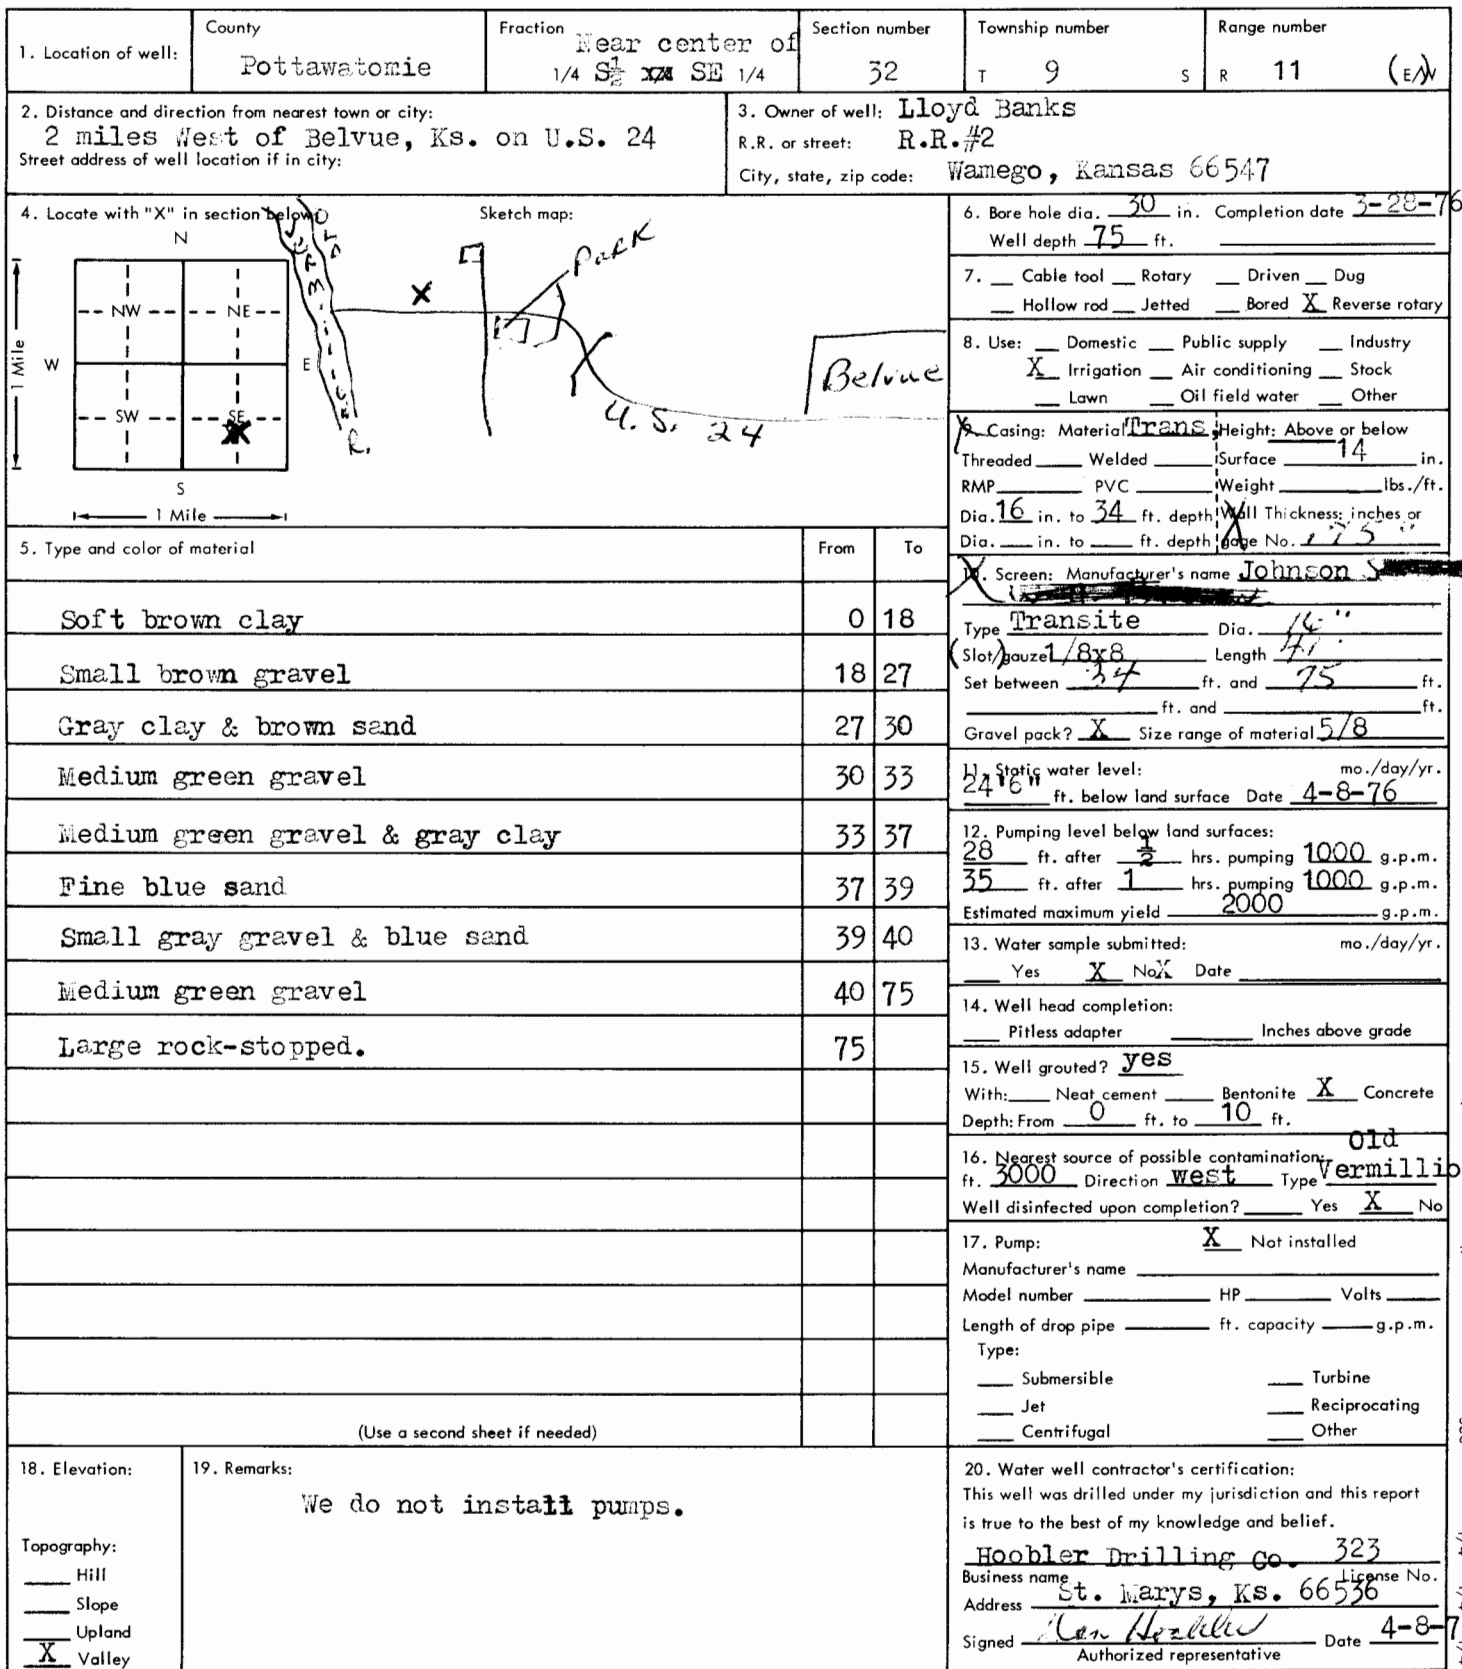 1. Location of well:
County
Pottawatomie
Fraction Near center of
1/4 S½ SE 1/4
Section number
32
Township number
T 9 S
Range number
R 11 (E/W
2. Distance and direction from nearest town or city:
2 miles West of Belvue, Ks. on U.S. 24
Street address of well location if in city:
3. Owner of well: Lloyd Banks
R.R. or street: R.R.#2
City, state, zip code: Wamego, Kansas 66547
4. Locate with "X" in section below:
N
NW NE
W E
SW SE
S
1 Mile
1 Mile
Sketch map:
OLD
R.
X
Park
Belvue
U.S. 24
5. Type and color of material From To
Soft brown clay 0 18
Small brown gravel 18 27
Gray clay & brown sand 27 30
Medium green gravel 30 33
Medium green gravel & gray clay 33 37
Fine blue sand 37 39
Small gray gravel & blue sand 39 40
Medium green gravel 40 75
Large rock-stopped. 75
(Use a second sheet if needed)
6. Bore hole dia. 30 in. Completion date 3-28-76
Well depth 75 ft.
7. Cable tool Rotary Driven Dug
Hollow rod Jetted Bored X Reverse rotary
8. Use: Domestic Public supply Industry
X Irrigation Air conditioning Stock
Lawn Oil field water Other
9. Casing: Material Trans. Height: Above or below
Threaded Welded Surface 14 in.
RMP PVC Weight lbs./ft.
Dia. 16 in. to 34 ft. depth Wall Thickness: inches or
Dia. in. to ft. depth gage No.
10. Screen: Manufacturer's name Johnson
Type Transite Dia.
(Slot/gauze 1/8x8 Length
Set between 34 ft. and 75 ft.
ft. and ft.
Gravel pack? X Size range of material 5/8
11. Static water level: mo./day/yr.
24'6" ft. below land surface Date 4-8-76
12. Pumping level below land surfaces:
28 ft. after ½ hrs. pumping 1000 g.p.m.
35 ft. after 1 hrs. pumping 1000 g.p.m.
Estimated maximum yield 2000 g.p.m.
13. Water sample submitted: mo./day/yr.
Yes X NoX Date
14. Well head completion:
Pitless adapter Inches above grade
15. Well grouted? yes
With: Neat cement Bentonite X Concrete
Depth: From 0 ft. to 10 ft.
16. Nearest source of possible contamination: Old
ft. 3000 Direction west Type Vermillio
Well disinfected upon completion? Yes X No
17. Pump: X Not installed
Manufacturer's name
Model number HP Volts
Length of drop pipe ft. capacity g.p.m.
Type:
Submersible Turbine
Jet Reciprocating
Centrifugal Other
18. Elevation:
Topography:
Hill
Slope
Upland
X Valley
19. Remarks:
We do not install pumps.
20. Water well contractor's certification:
This well was drilled under my jurisdiction and this report
is true to the best of my knowledge and belief.
Hoobler Drilling Co. 323
Business name License No.
Address St. Marys, Ks. 66536
Signed Hoobler Date 4-8-7
Authorized representative